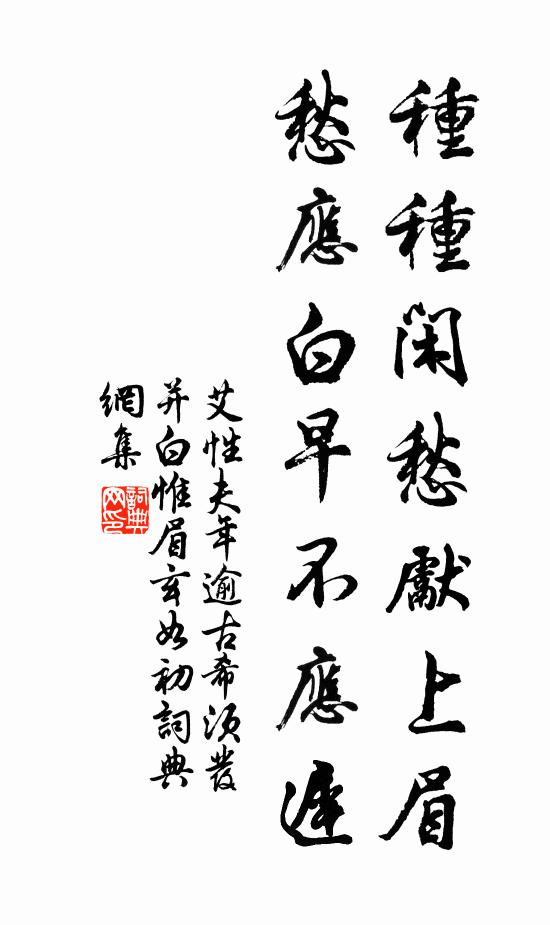 種種閑愁獻上眉
愁應白早不應遲
艾性夫年逾古希須發
并白惟眉玄如初詞典
網集
詞典
网印